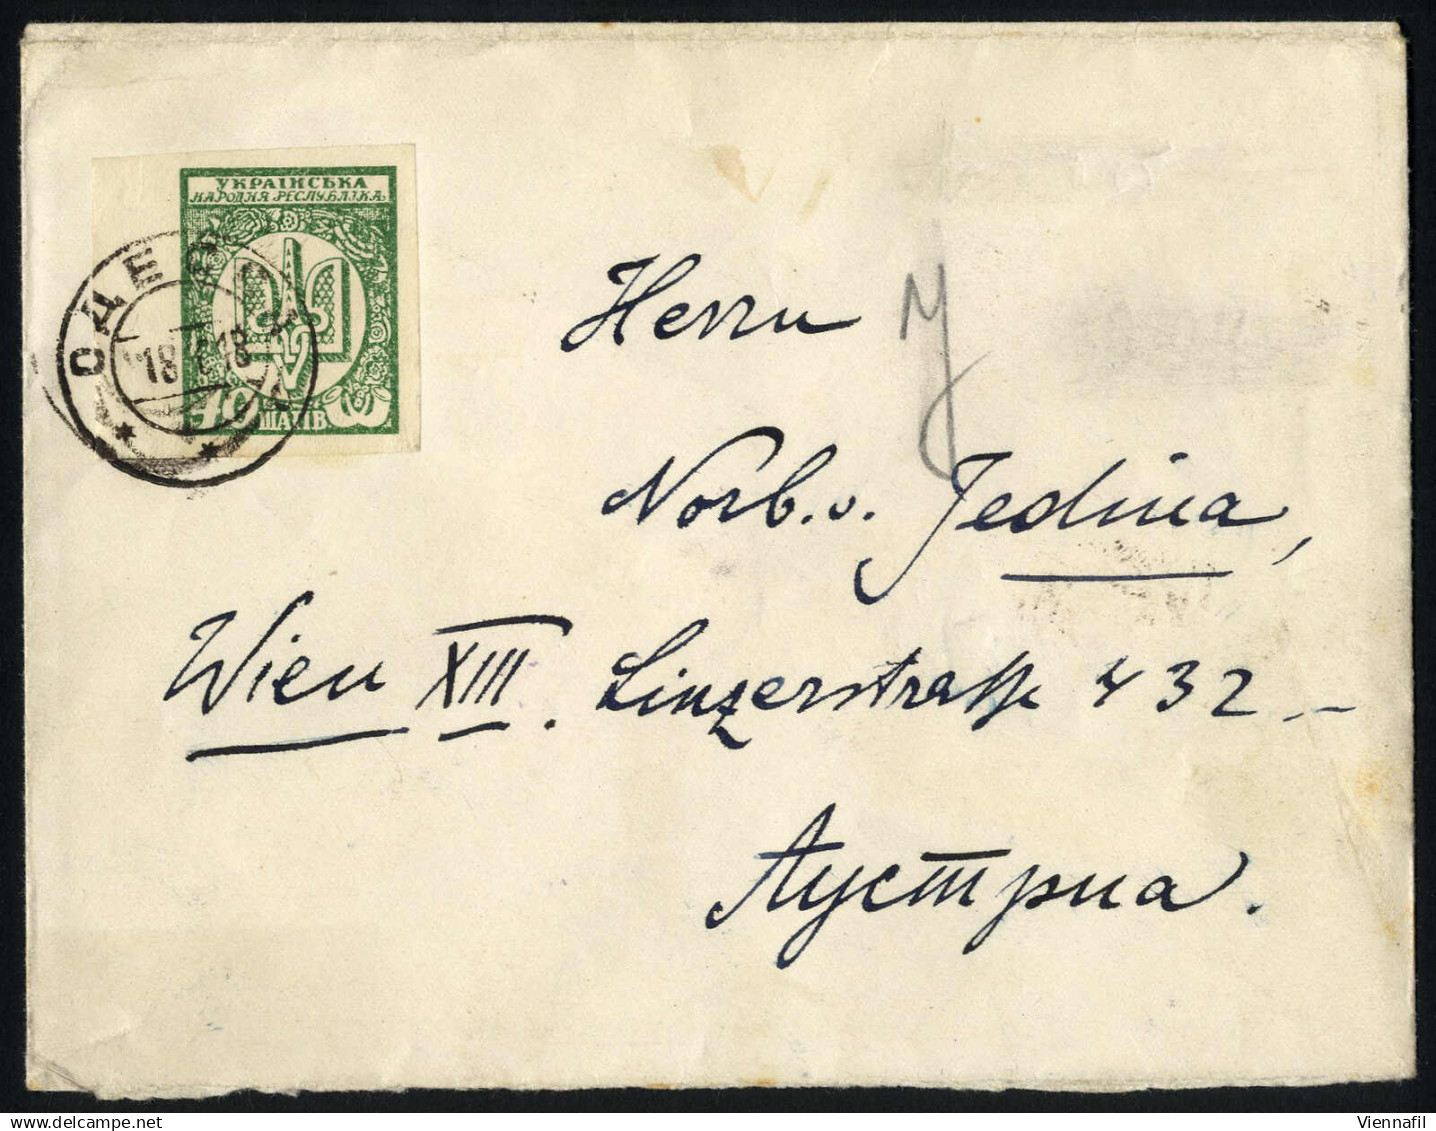 УКРАЇНСЬКА
НАРОДНЯ РЕСПУБЛІКА
40 ШАГІВ
ОДЕССА
18 18
Herrn
Norb. v. Jedina,
Wien XIII. Linzerstraße 432 –
Аустриа.
Viennafil